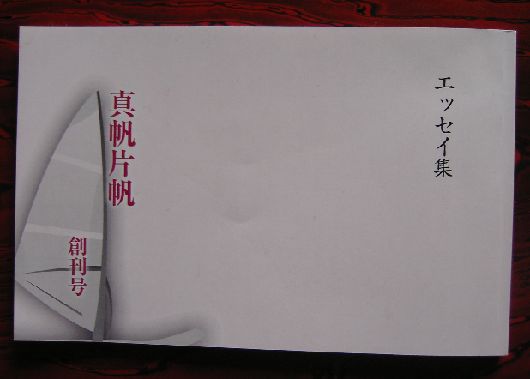 エッセイ集
真帆片帆
創刊号